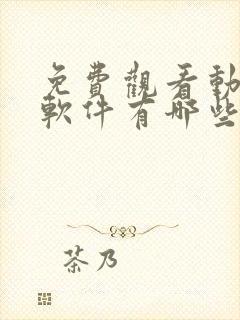 免費觀看動
軟件有哪些
茶乃